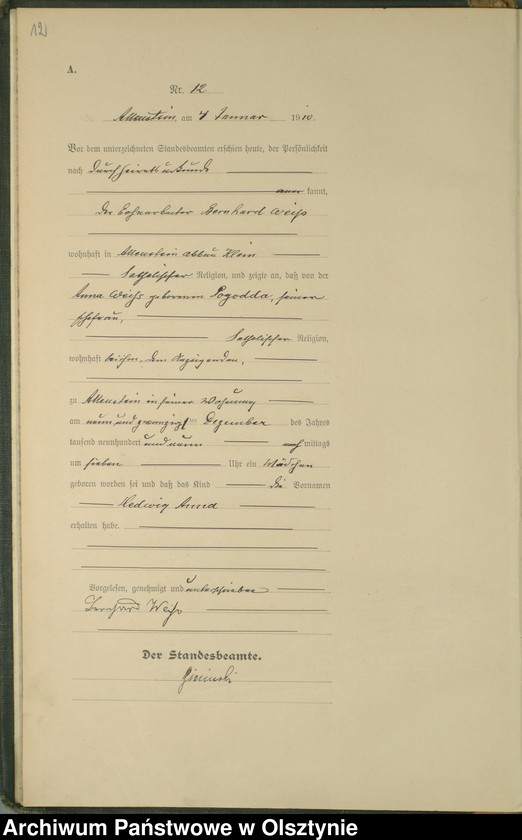 12
A.
Nr. 12
Allenstein, am 4 Januar 1910.
Vor dem unterzeichneten Standesbeamten erschien heute, der Persönlichkeit
nach durch Heiratsurkunde
aner kannt,
der Bohnarbeiter Bernhard Weiß
wohnhaft in Allenstein abbau Klein
katholischer Religion, und zeigte an, daß von der
Anna Weiß geborenen Pogodda, seiner
Ehefrau,
katholischer Religion,
wohnhaft bei ihm, dem Anzeigenden,
zu Allenstein in seiner Wohnung
am neun und zwanzigsten Dezember des Jahres
tausend neunhundert und neun nachmittags
um sieben Uhr ein Mädchen
geboren worden sei und daß das Kind die Vornamen
Hedwig Anna
erhalten habe.
Vorgelesen, genehmigt und unterschrieben
Bernhard Weiß
Der Standesbeamte.
Archiwum Państwowe w Olsztynie